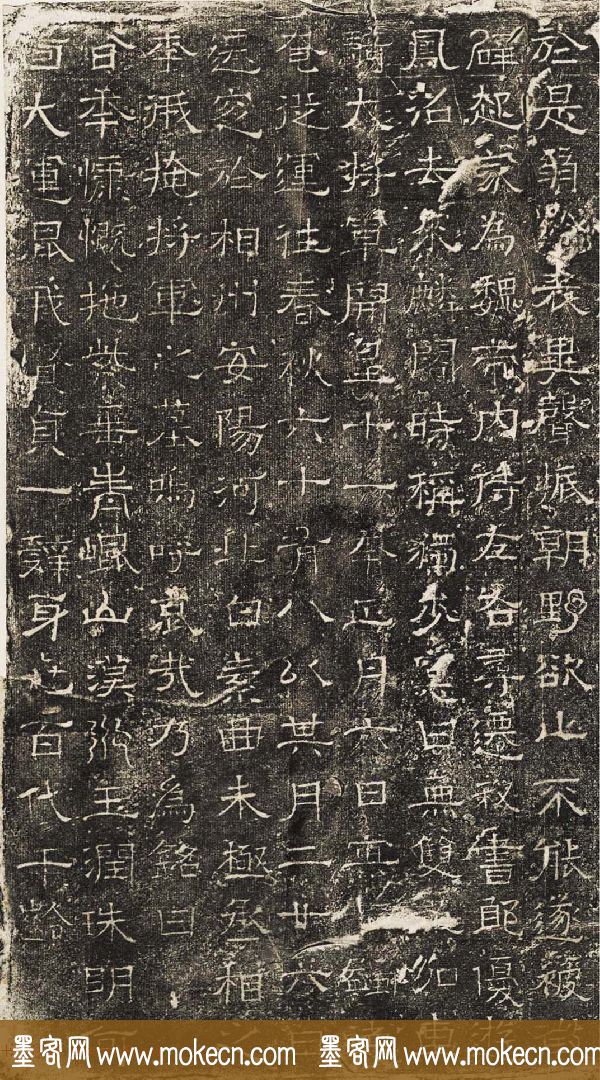 於是有以表異聲振朝野欲止不能遂被
辟起家為魏帝內侍左右尋遷秘書郎優
鳳沼去來麟閣時稱獨步曰無雙加
大將軍開皇十一年正月六日
從運往春秋六十有八以其月二廿六
遠窆於相州安陽河北白素曲未極丞相
奉祇掩將軍之墓嗚呼哀哉乃為銘曰
昔奉慷慨拖紫垂青崐山漢水玉潤珠明
大運昆我貞一辭身百代千齡
墨客网 www.mokecn.com 墨客网 www.mokecn.com